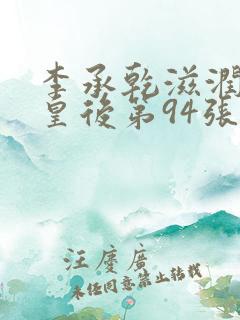 李承乾滋潤
皇後第94張
汪慶廣
未经同意禁止转载